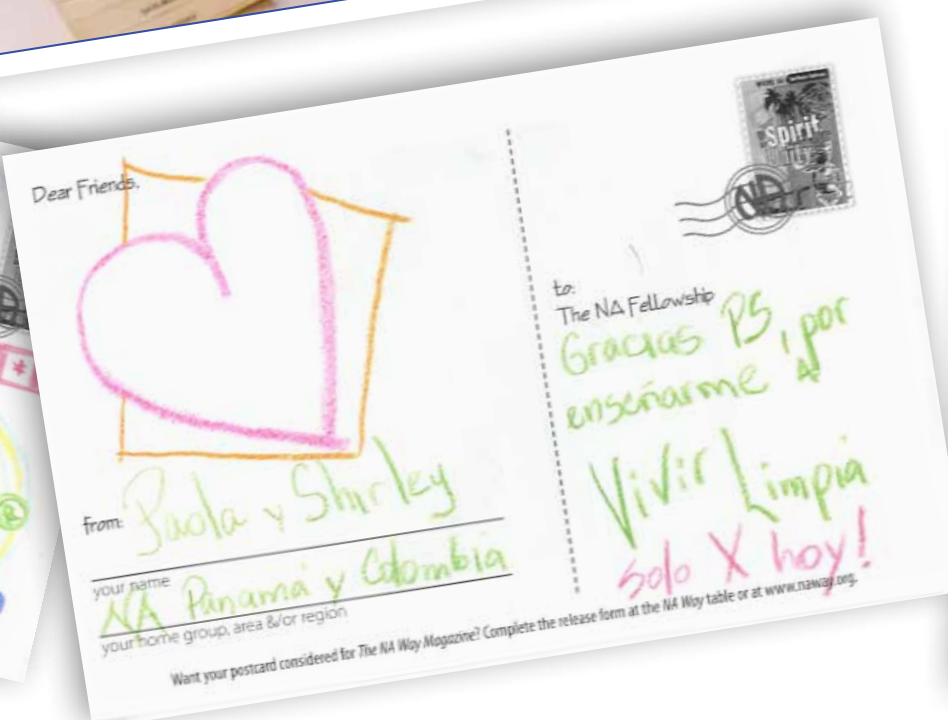 Dear Friends,
from: Paola y Shirley
your name
NA Panamá y Colombia
your home group, area &/or region
Spirit
NA
to:
The NA Fellowship
Gracias PS, por
enseñarme A
Vivir Limpia
solo X hoy!
Want your postcard considered for The NA Way Magazine? Complete the release form at the NA Way table or at www.naway.org.
*
R